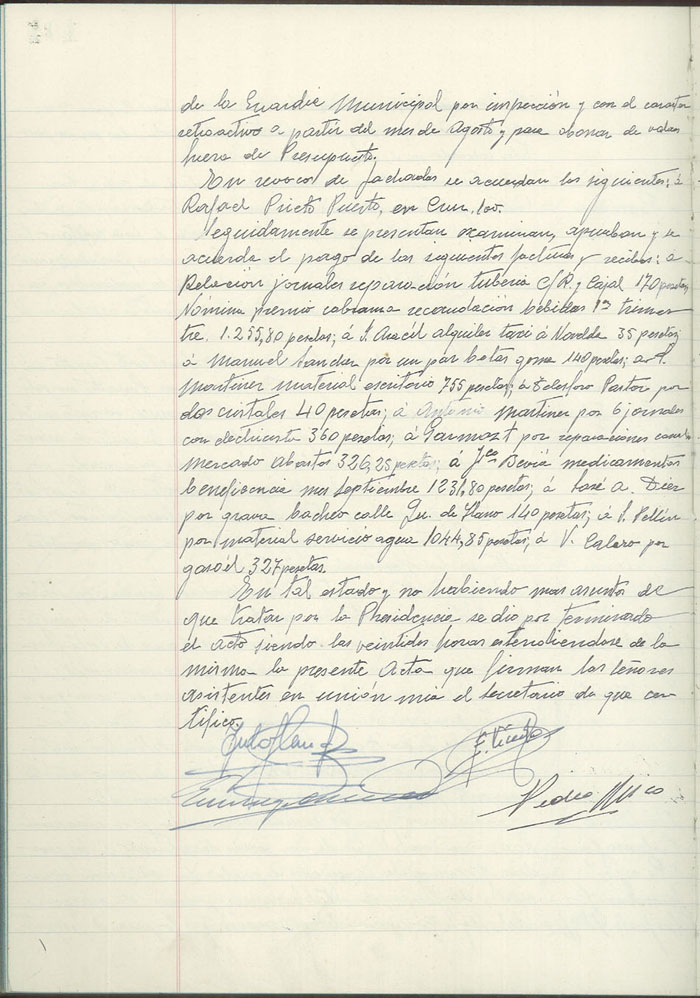 de la Guardia Municipal por inspección y con el caracter
retroactivo a partir del mes de Agosto y para abonar de vales
fuera de Presupuesto.
En revocos de fachadas se acuerdan los siguientes; á
Rafael Prieto Puerto, en Cruz, 100.
Seguidamente se presentan examinan, aprueban y se
acuerda el pago de las siguientes facturas y recibos: a
Relación jornales reparación tuberia C/R. y Cajal 170 pesetas,
Nómina premio cobranza recaudación bebidas 1er trimes-
tre. 1.255,80 pesetas; á J. Aracil alquiler taxi á Novelda 35 pesetas;
á Manuel Sanchez por un par botas goma 140 pesetas; a
Martinez material escritorio 755 pesetas; á Telesforo Pastor por
dos cristales 40 pesetas; á Antonio Martinez por 6 jornales
con electricista 360 pesetas; á Garmozt por reparaciones
mercado abastos 326,25 pesetas; á Fco Beviá medicamentos
beneficencia mes Septiembre 1231,80 pesetas; á José A. Diez
por grava bacheo calle Qu. de Llano 140 pesetas; á P. Pellín
por material servicio agua 1044,85 pesetas; á V. Calero por
gasoil 327 pesetas.
En tal estado y no habiendo mas asuntos de
que tratar por la Presidencia se dio por terminado
el acto siendo las veintidos horas extendiendose de la
misma la presente Acta que firman los señores
asistentes en unión mia el Secretario de que cer-
tifico.
Pedro Mico